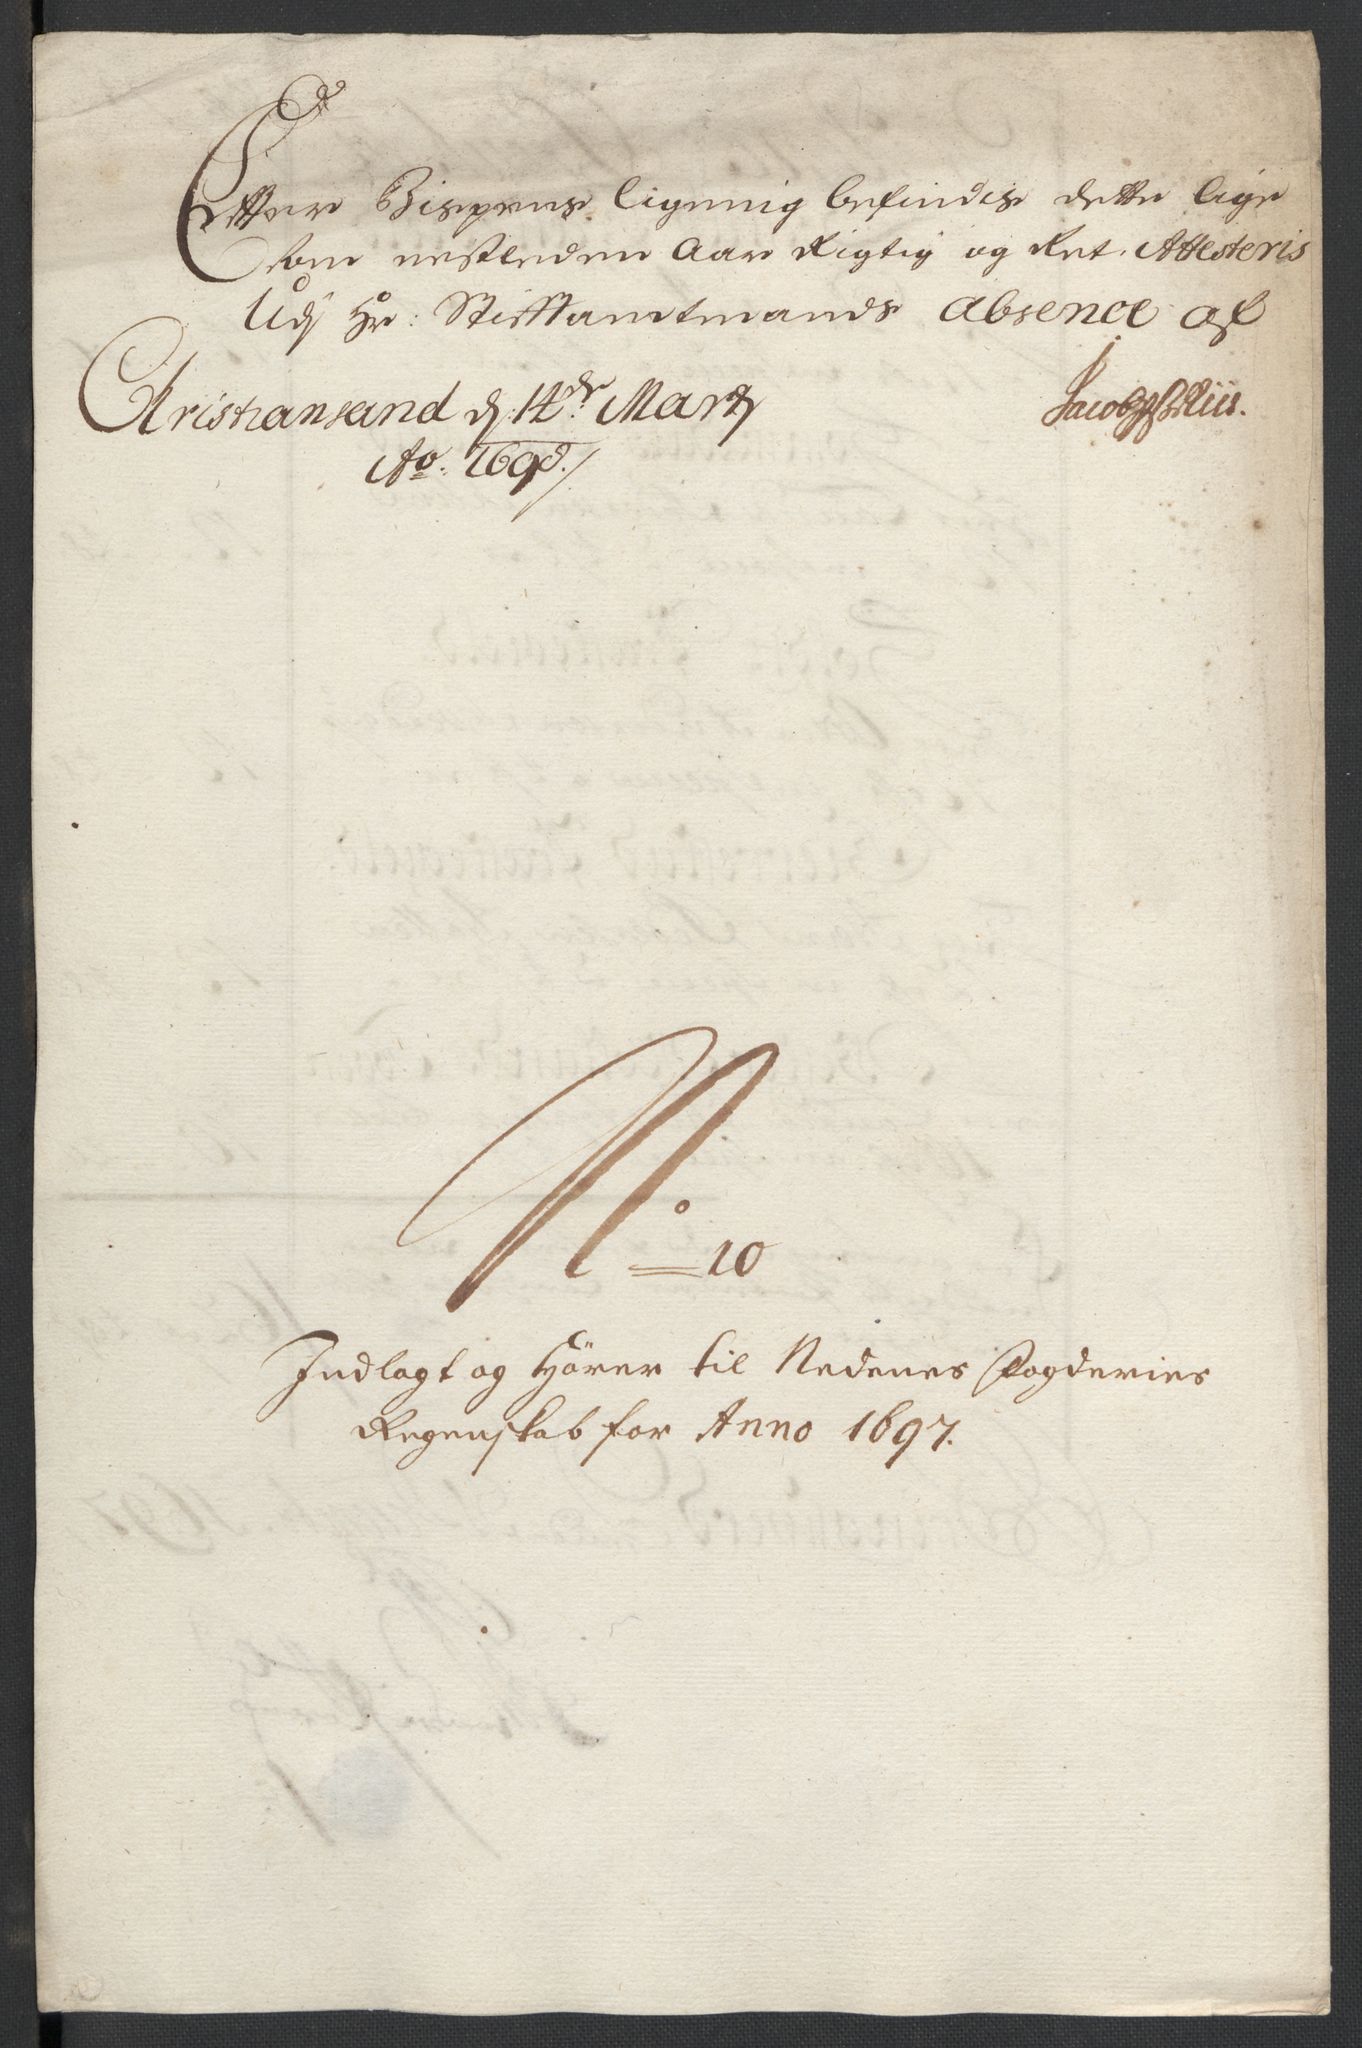 Effter Bispens ligning befindis dette lige
som nestleden Aar Rigtig og Ret. Attesteris
Udj Hr: Stifftamtmands Absence af
Christiansand d: 14de Marty
Ao: 1698./
No 10
Indlagt og Hörer til Nedenes Fogderies
Regenskab for Anno 1697.